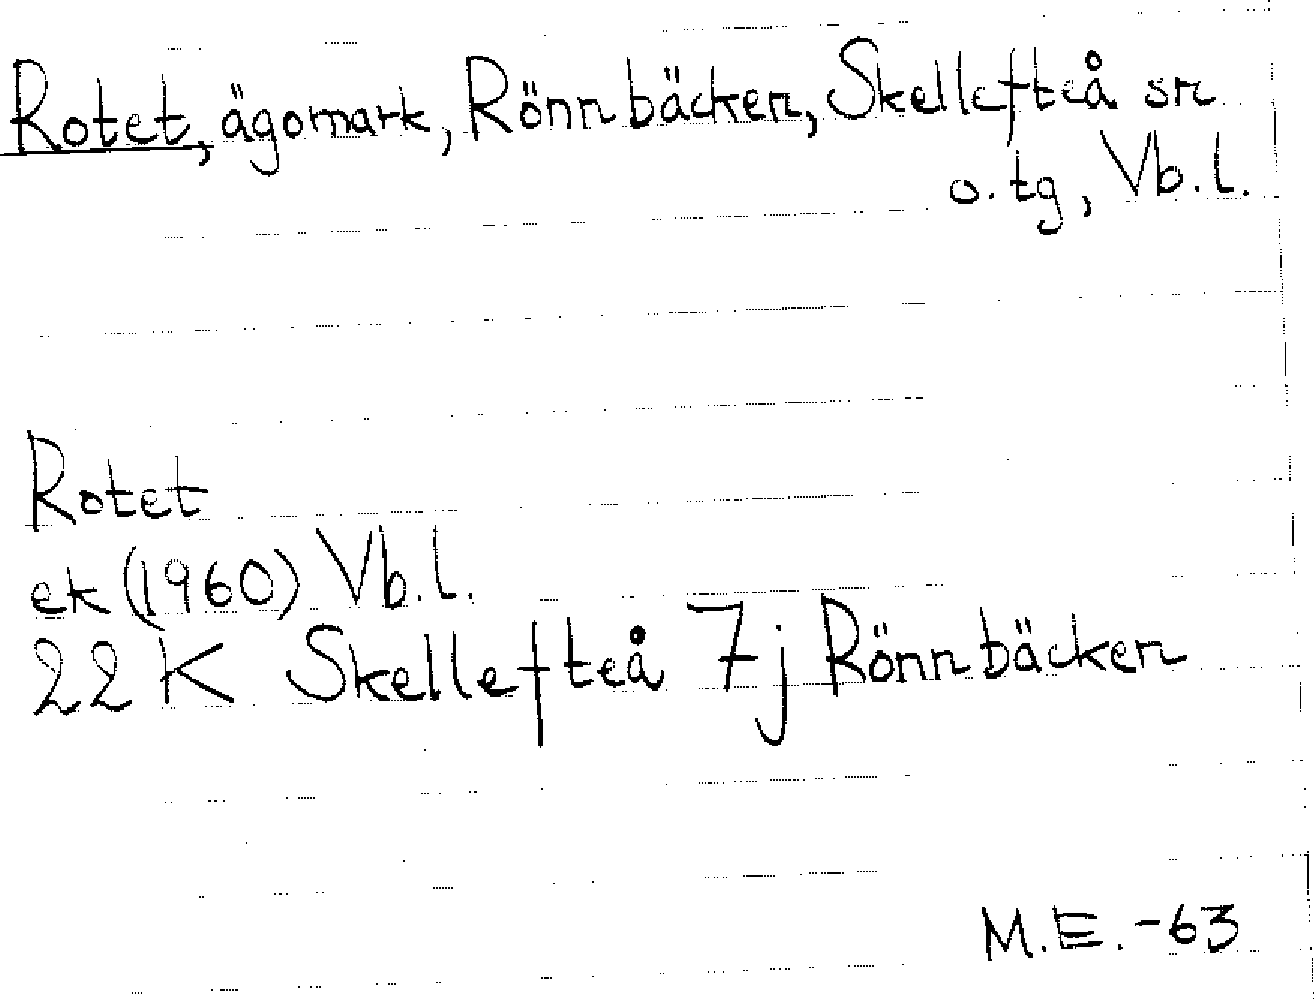 Rotet, ägomark, Rönnbäcken, Skellefteå sn
o. tg, Vb.l.
Rotet
ek (1960) Vb.l.
22 K Skellefteå 7j Rönnbäcken
M.E. -63